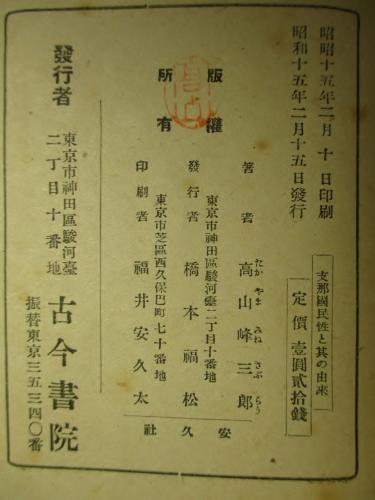 昭昭十五年二月十日印刷
昭和十五年二月十五日發行
支那國民性と其の由來
定價壹圓貳拾錢
版權
所有
著者 高山峰三郎
たかやまみねさぶらう
東京市神田區駿河臺二丁目十番地
發行者 橋本福松
東京市芝區西久保巴町七十番地
印刷者 福井安久太
安久社
發行者
東京市神田區駿河臺
二丁目十番地
古今書院
振替東京三五三四〇番